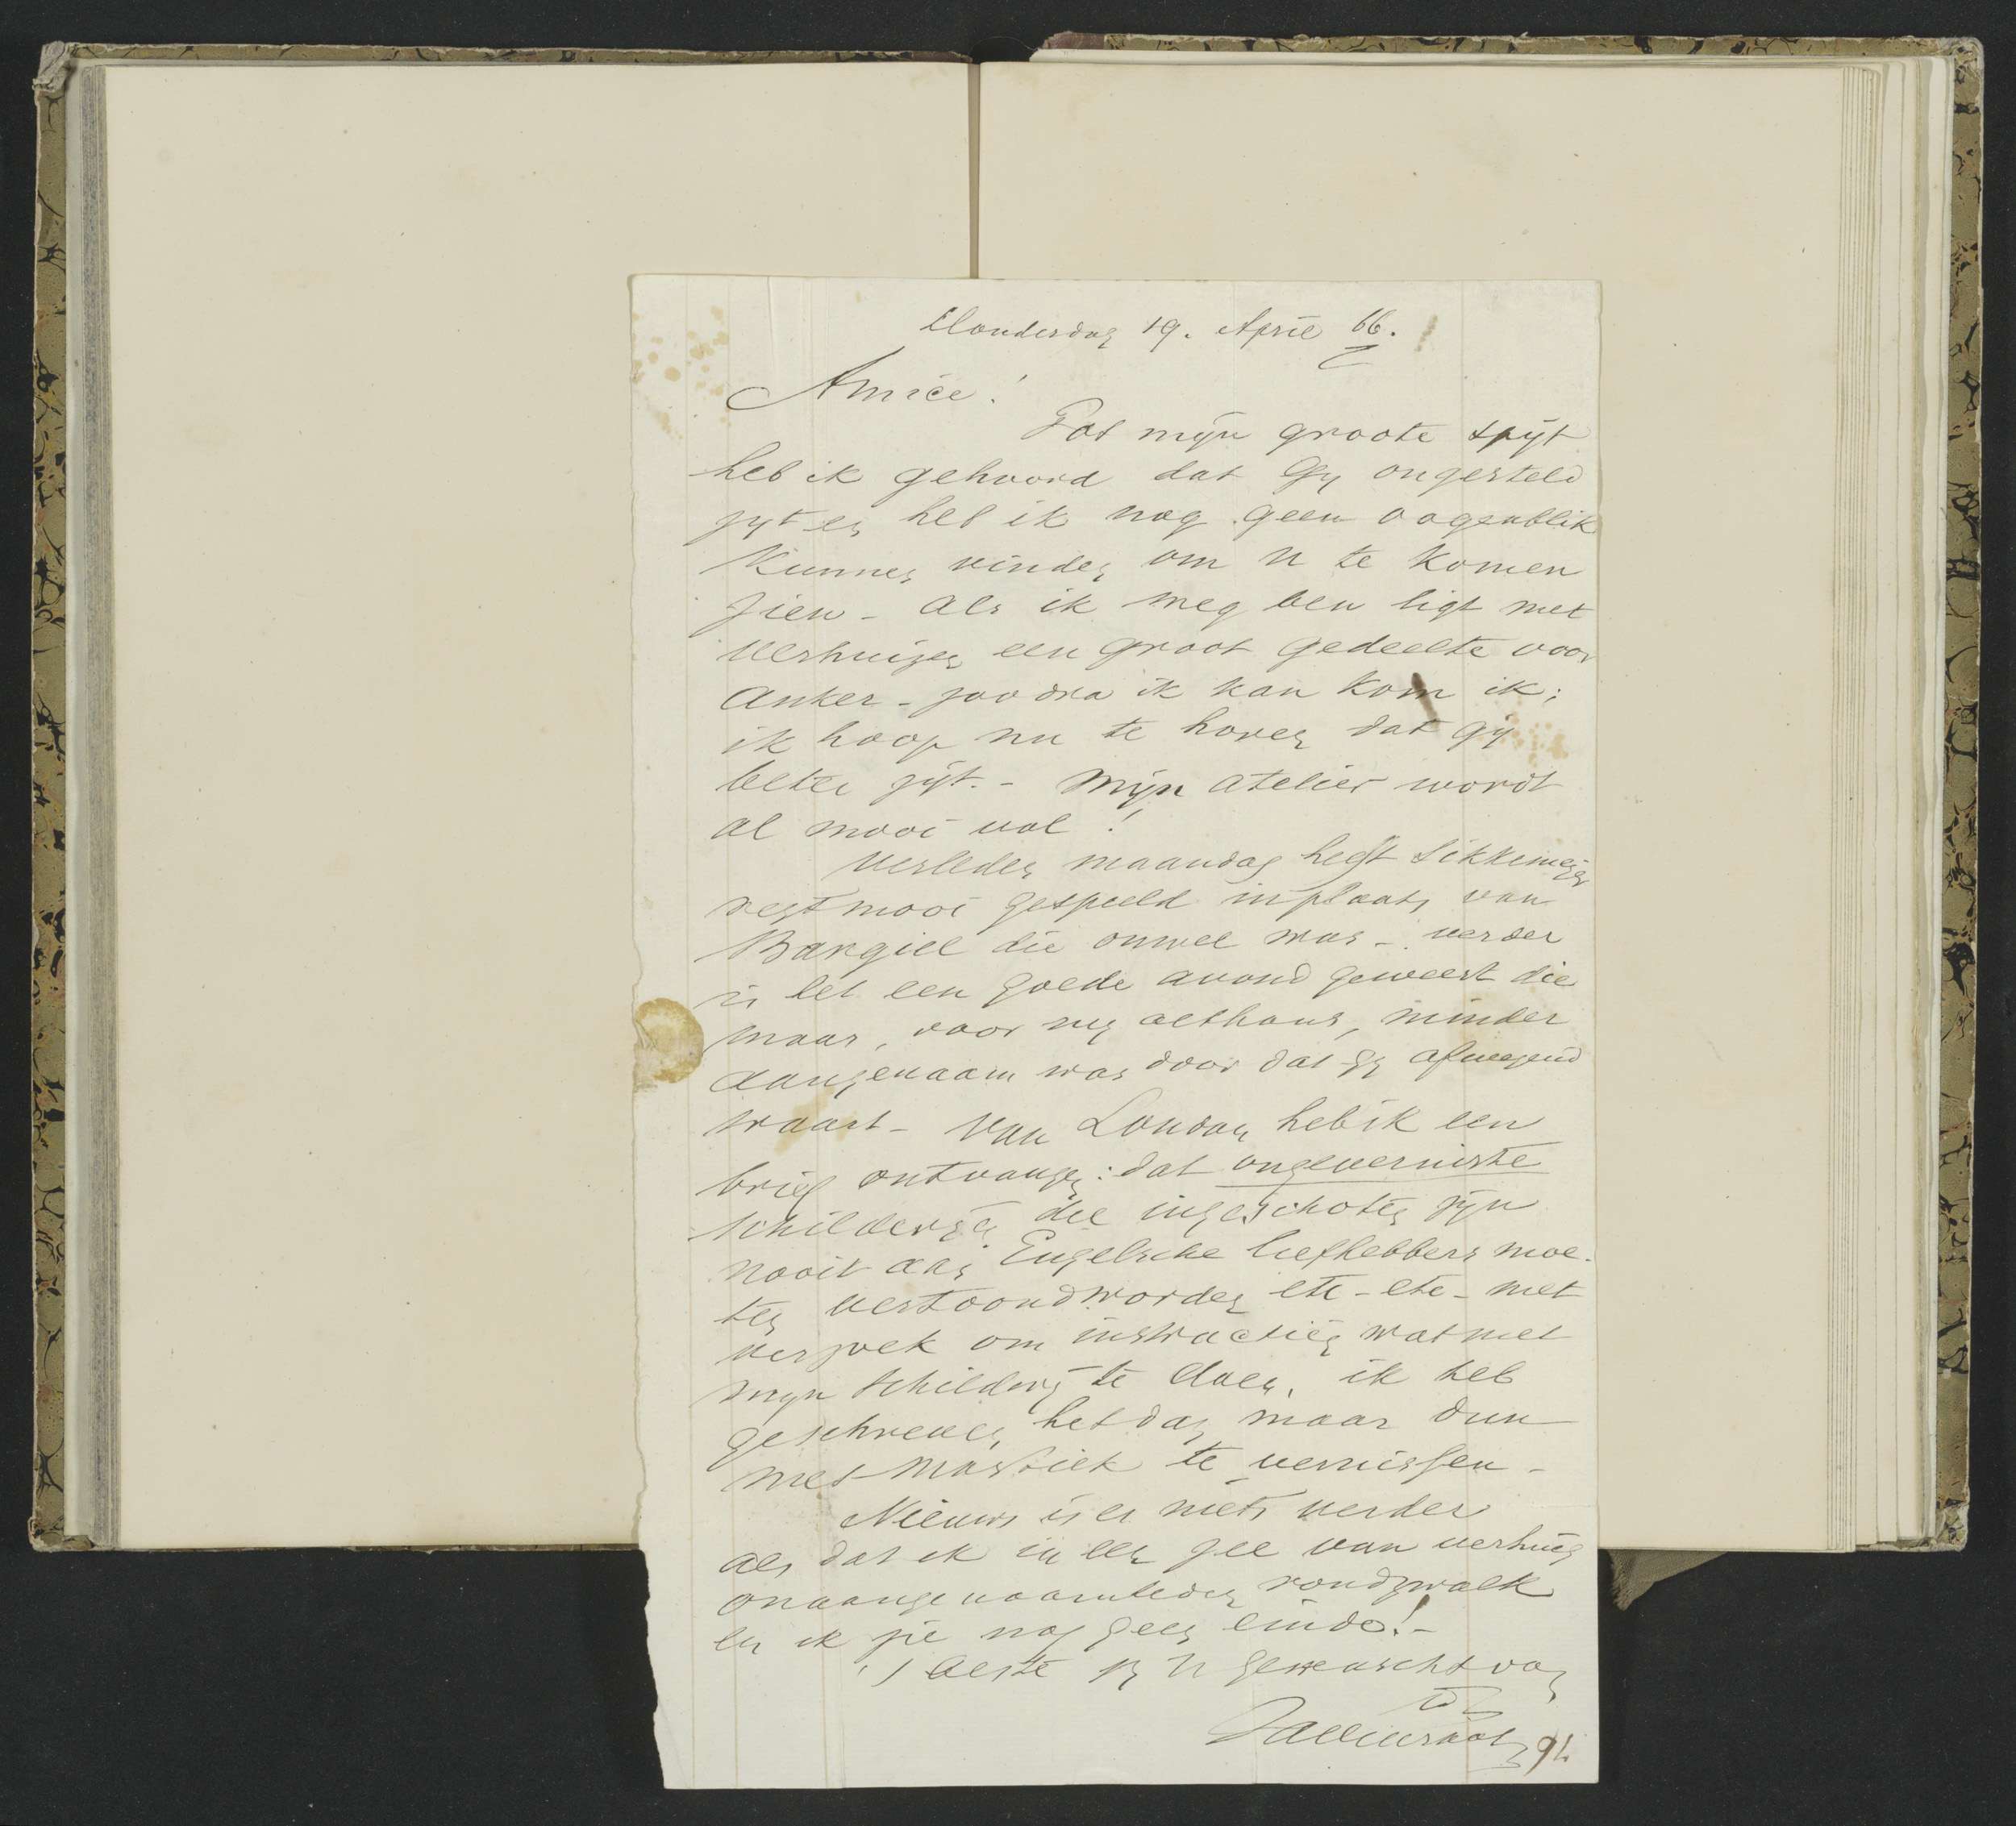 Donderdag 19. April 66.
Amice!
Tot mijn groote spijt
heb ik gehoord dat Gy ongesteld
zyt en heb ik nog geen oogenblik
kunnen vinden om U te komen
zien - als ik weg ben ligt met
verhuizen een groot gedeelte voor
anker - zoodra ik kan kom ik;
ik hoop nu te horen dat gij
beter zijt. - Mijn atelier wordt
al mooi vol!
Verleden maandag heeft Sikkemeijer
regt mooi gespeeld in plaats van
Bargiel die onwel was - verder
is het een goede avond geweest die
maar, voor my althans, minder
aangenaam was door dat gy afwezend
waart - Van London heb ik een
brief ontvangen: dat ongeverniste
schilderyen die ingeschoten zijn
nooit aan Engelsche liefhebbers moe-
ten vertoond worden etc - etc - met
verzoek om instructien wat met
mijn schildery te doen, ik heb
geschreven het dan maar dun
met Mastiek te vernissen -
Nieuws is er niets verder
als dat ik in een zee van verhuis
onaangenaamheden rondzwalk
en ik zie nog geen einde! -
't beste zy U gewenscht van
Tallensaat
91.